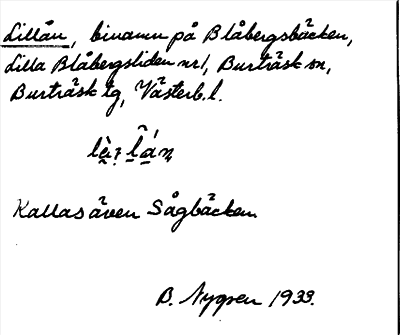 Lillån, binamn på Blåbergsbäcken,
Lilla Blåbergsliden nr 1, Burträsk sn,
Burträsk tg, Västerb. l.
Kallas även Sågbäcken
B. Nygren 1933.